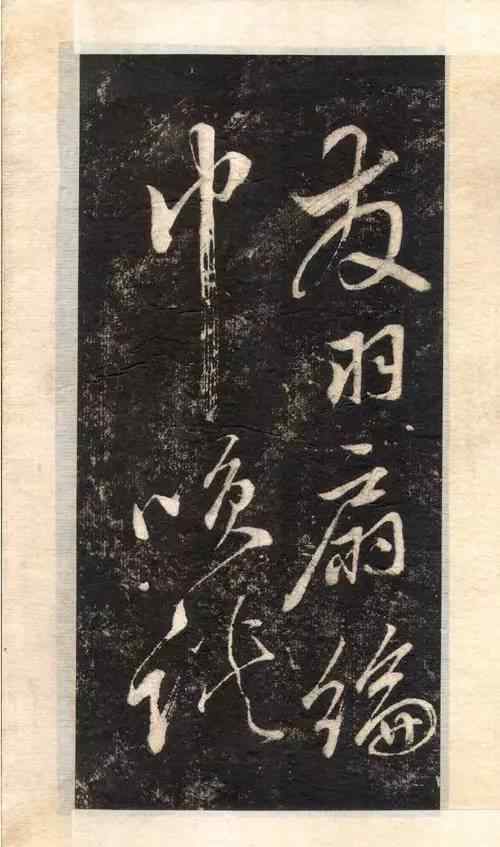 发羽扇纶
巾谈笑